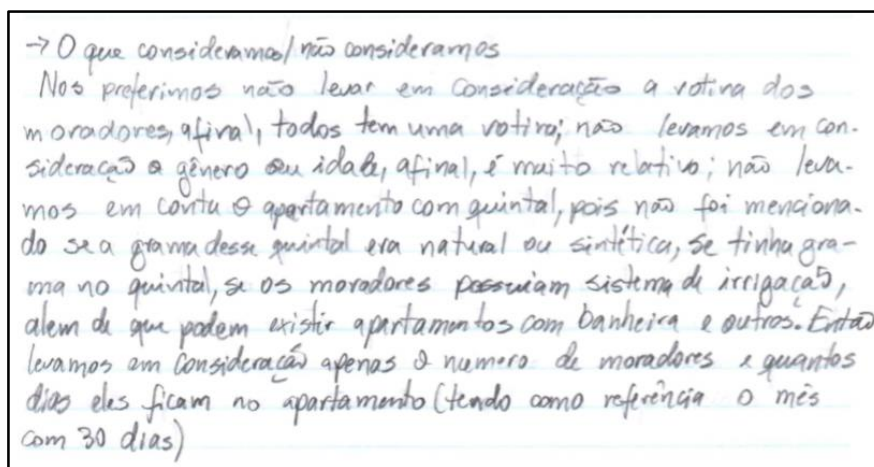 → O que consideramos/não consideramos
Nos preferimos não levar em consideração a rotina dos
moradores, afinal, todos tem uma rotina; não levamos em con-
sideração o gênero ou idade, afinal, é muito relativo; não leva-
mos em conta o apartamento com quintal, pois não foi menciona-
do se a grama desse quintal era natural ou sintética, se tinha gra-
ma no quintal, se os moradores possuiam sistema de irrigação,
alem de que podem existir apartamentos com banheira e outros. Então
levamos em consideração apenas o numero de moradores e quantos
dias eles ficam no apartamento (tendo como referência o mês
com 30 dias)